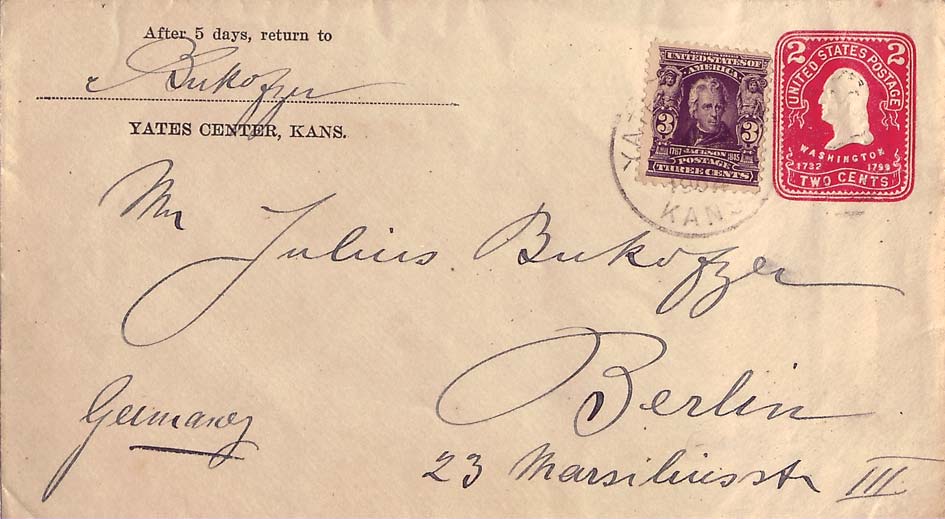 After 5 days, return to
Bukofzer
YATES CENTER, KANS.
UNITED STATES OF
AMERICA
3 3
1767 JACKSON 1845
POSTAGE
THREE CENTS
KANS
2 2
UNITED STATES POSTAGE
WASHINGTON
1732 1799
TWO CENTS
Mr
Julius Bukofzer
Berlin
Germany
23 Marsiliusstr III.